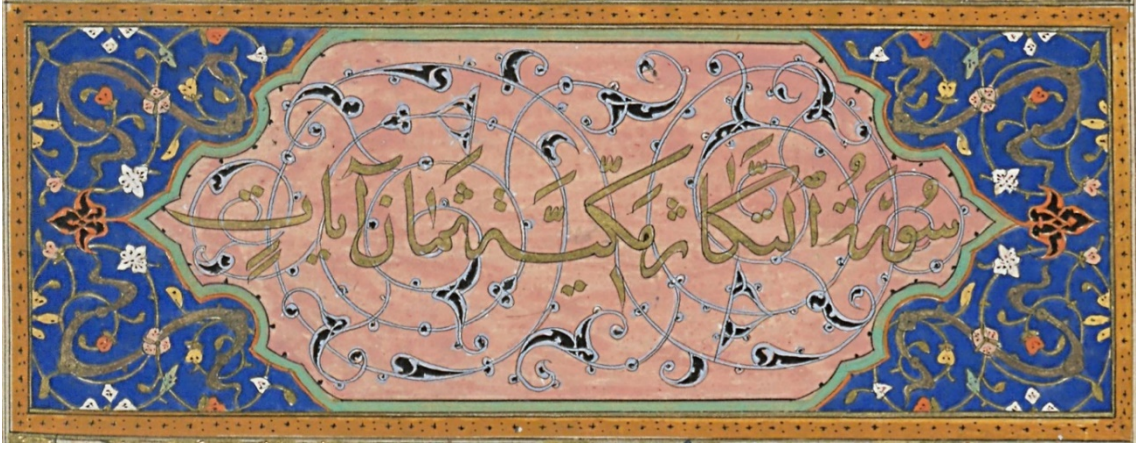 سُورَةُ ٱلتَّكَاثُر مَكِّيَّة ثَمَانِ آيَاتٍ